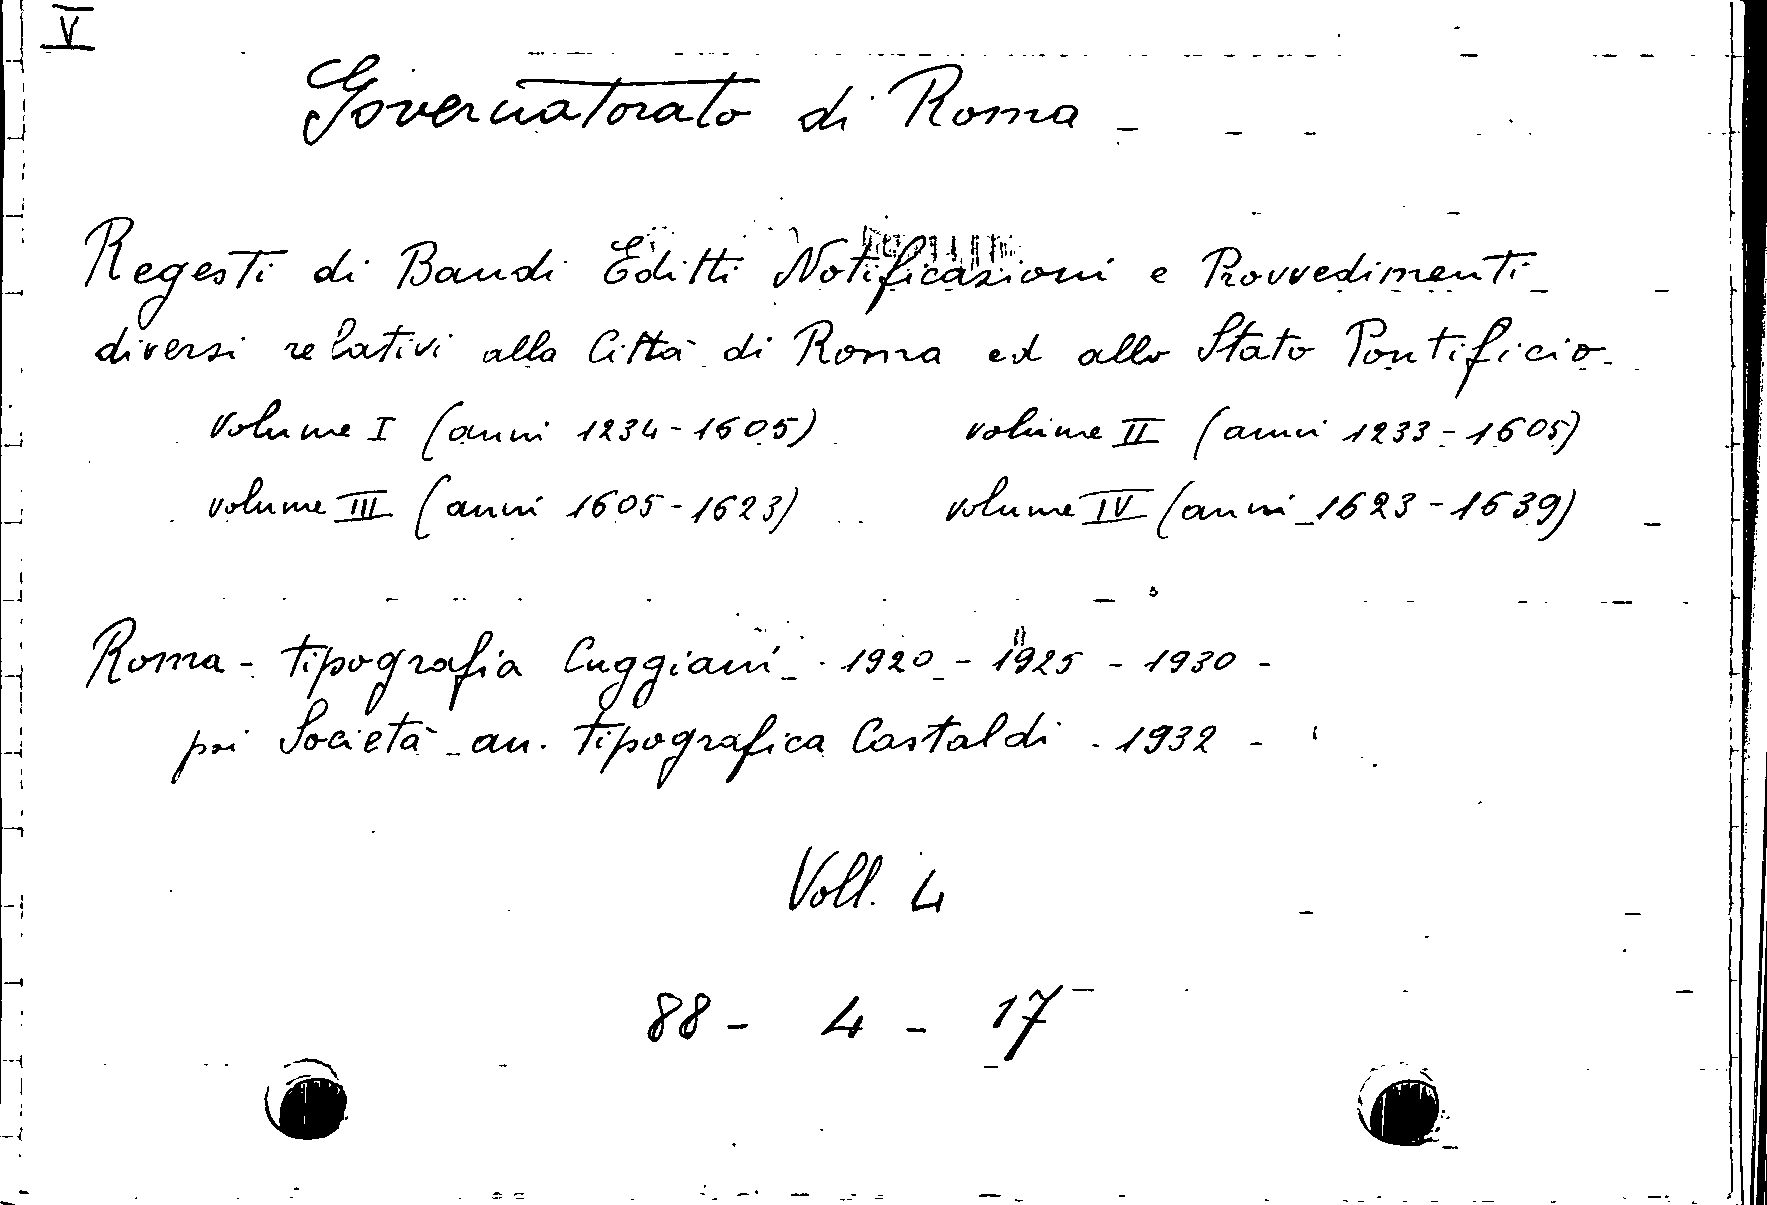 V
Governatorato di Roma -
Regesti di Bandi Editti Notificazioni e Provvedimenti
diversi relativi alla Città di Roma ed allo Stato Pontificio.
volume I (anni 1234-1605) volume II (anni 1233-1605)
volume III (anni 1605-1623) volume IV (anni 1623-1639)
Roma - tipografia Cuggiani - 1920 - 1925 - 1930 -
poi Società an. tipografica Castaldi - 1932 -
Voll. 4
88 - 4 - 17